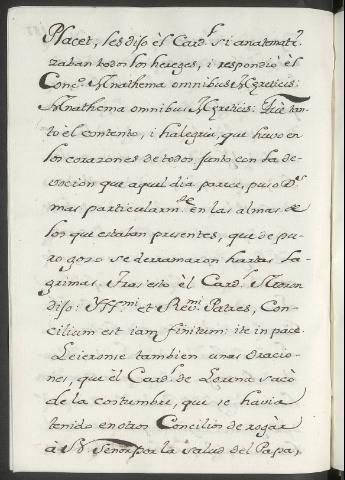 Placet, les dijo èl Card.l si anatematiz
zaban todos los hereges, i respondiò èl
Conc.o Anathema omnibus Hæreticis:
Anathema omnibus Hæreticis: Fuè tan
to el contento, i halegria, que huvo en
los corazones de todos junto con la de-
vocion que aquel dia parece, puso D.s
mas particularm.te en las almas de
los que estaban presentes, que de pu-
ro gozo se derramaron hartas la-
grimas. Tras esto èl Card.l
dijo: Ill.mi et Rev.mi Patres, Con-
cilium est iam finitum: ite in pace.
Leieronse tambien unas Oracio-
nes, que èl Card.l de Lorena sacò
de la costumbre, que se havia
tenido en otros Concilios de rogàr
à N. Señor por la salud del Papa,